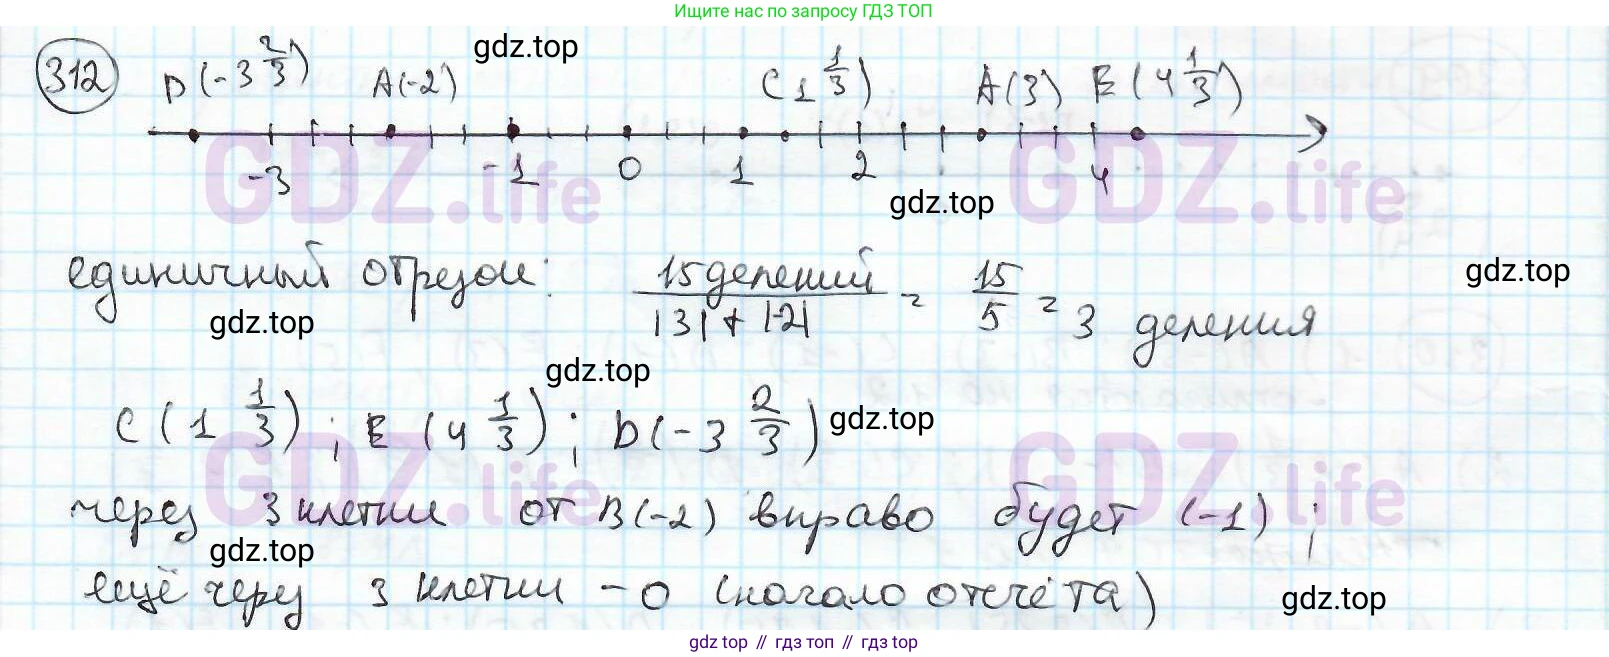 Ищите нас по запросу ГДЗ ТОП
gdz.top
312 D(-3 2/3) A(-2) C 1 1/3) A(3) E(4 1/3)
-3 -1 0 1 2 4
gdz.top
GDZ.life GDZ.life
единичный отрезок: 15 делений / |3| + |-2| = 15/5 = 3 деления
gdz.top
gdz.top
gdz.top
C(1 1/3); E(4 1/3); D(-3 2/3)
gdz.top
GDZ.life GDZ.life
через 3 клетки от B(-2) вправо будет (-1);
gdz.top
ещё через 3 клетки - 0 (начало отсчёта)
gdz.top
gdz top // гдз топ // гдз top